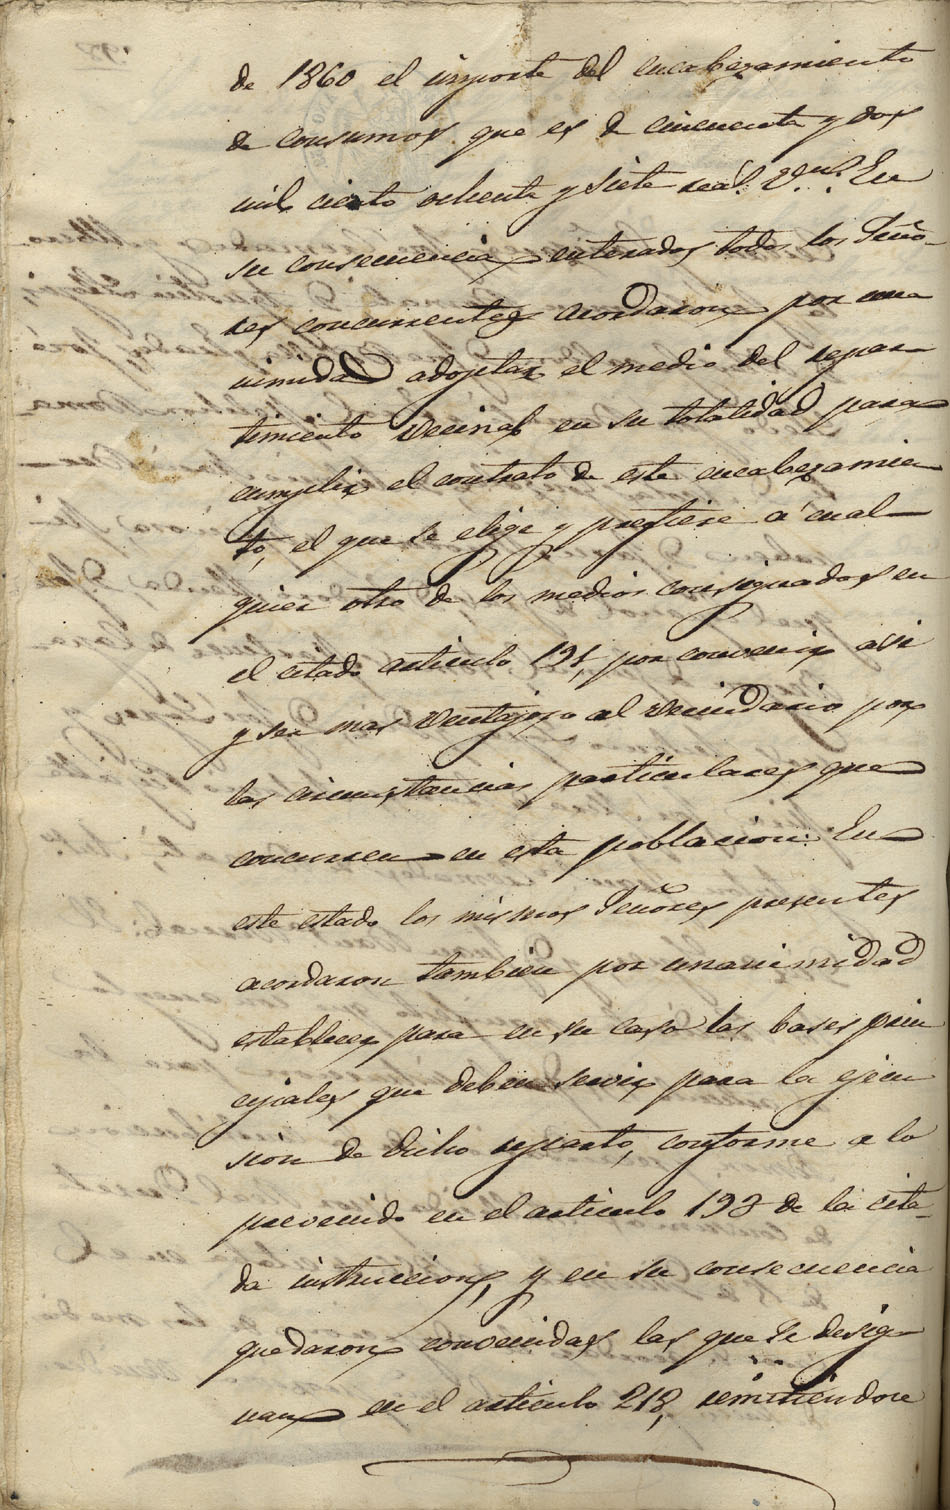 de 1860 el importe del encabezamiento
de consumos que es de cincuenta y dos
mil ciento ochenta y siete reas. Vn. En
su consecuencia enterados todos los Seño-
res concurrentes acordaron por una
nimidad adoptar el medio del repar-
timiento vecinal en su totalidad para
cumplir el contrato de este encabezamien
to, el que se elige y prefiere á cual-
quier otro de los medios consignados en
el citado articulo 191, por convenir asi
y ser mas ventajoso al vecindario por
las circunstancias particulares que
concurren en esta poblacion. En
este estado los mismos Señores presentes
acordaron tambien por unanimidad
establecer para en su caso las bases prin
cipales que deben servir para la ejecu
sion de dicho reparto, conforme a lo
prevenido en el articulo 193 de la cita-
da instruccion, y en su consecuencia
quedaron convenidas las que se desig-
nan en el articulo 218, remitiendose